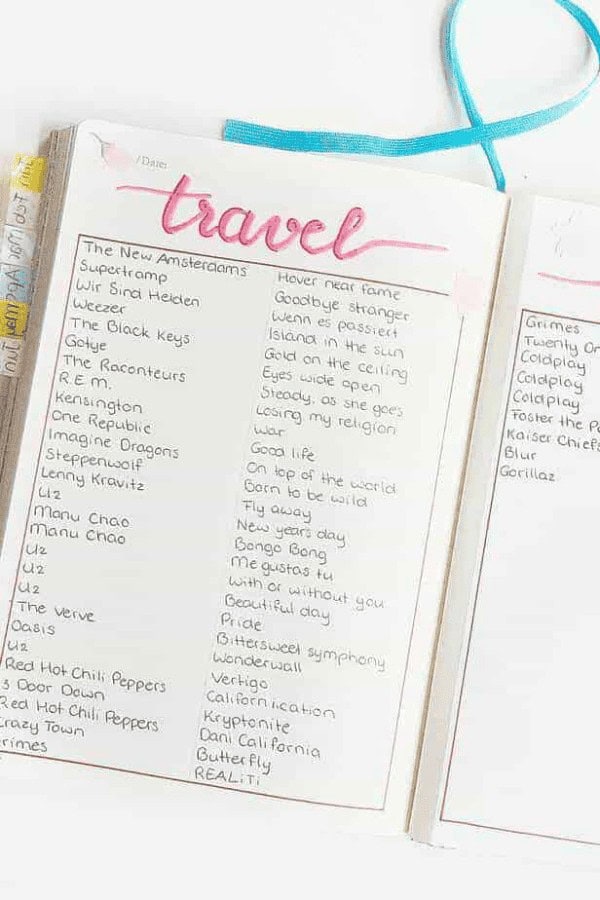 /Date:
travel
The New Amsterdams Hover near fame
Supertramp Goodbye stranger
Wir Sind Helden Wenn es passiert
Weezer Island in the sun
The Black Keys Gold on the ceiling
Gotye Eyes wide open
The Raconteurs Steady, as she goes
R.E.M. Losing my religion
Kensington War
One Republic Good life
Imagine Dragons On top of the world
Steppenwolf Born to be wild
Lenny Kravitz Fly away
U2 New years day
Manu Chao Bongo Bong
Manu Chao Me gustas tu
U2 With or without you
U2 Beautiful day
U2 Pride
The Verve Bittersweet symphony
Oasis Wonderwall
U2 Vertigo
Red Hot Chili Peppers Californication
3 Door Down Kryptonite
Red Hot Chili Peppers Dani California
Crazy Town Butterfly
rimes REALiTi
Grimes
Twenty On
Coldplay
Coldplay
Coldplay
Foster the Pe
Kaiser Chiefs
Blur
Gorillaz